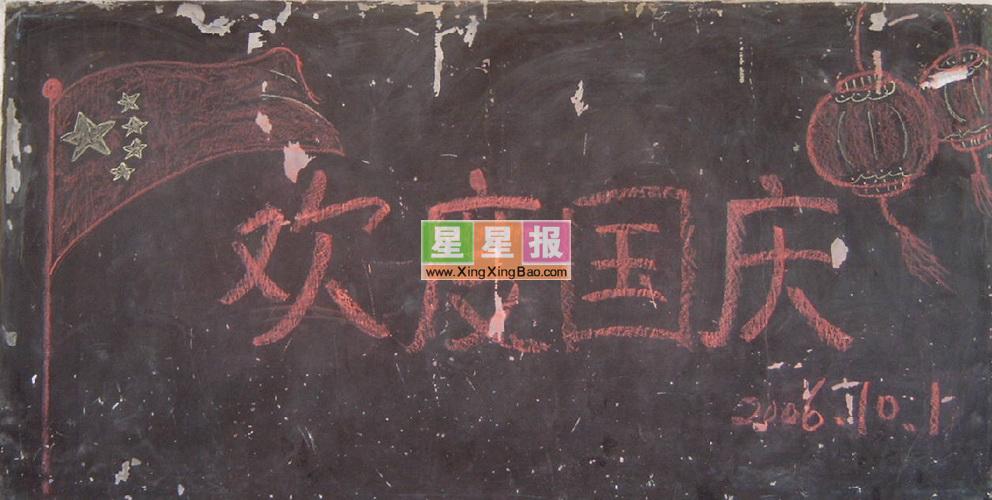 欢度国庆
星星报
www.XingXingBao.com
2006.10.1